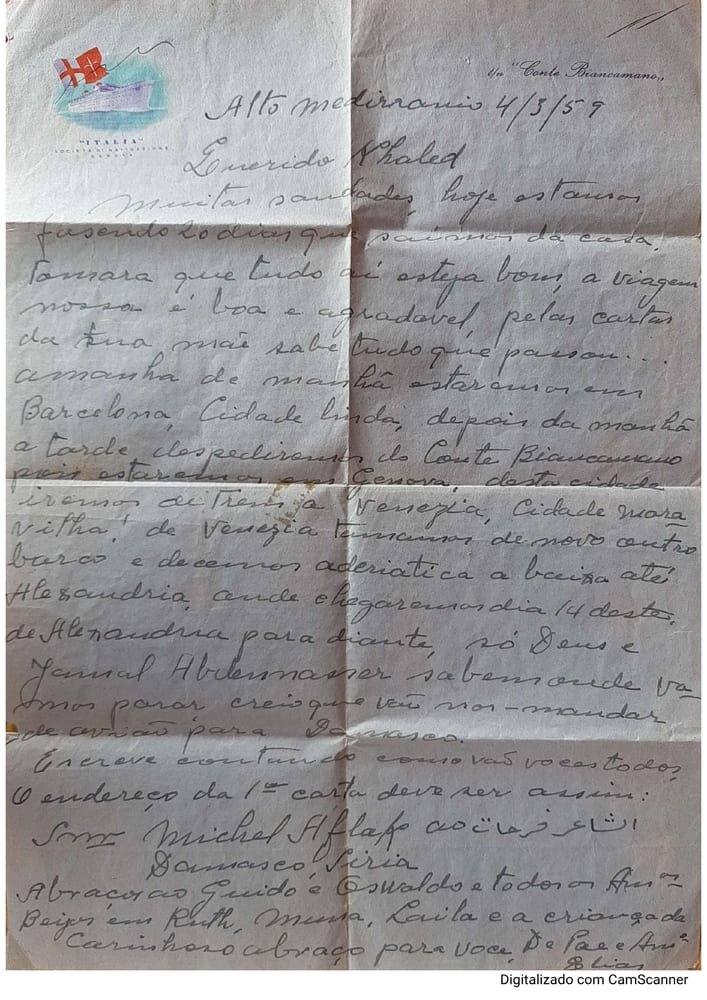 t/n "Conte Biancamano"
"ITALIA"
SOCIETÀ DI NAVIGAZIONE
GENOVA
Alto medirranio 4/3/59
Querido Khaled
Muitas saudades, hoje estamos
fasendo 20 dias que saimos da casa,
tomara que tudo aí esteja bom, a viagem
nossa é boa e agradavel, pelas cartas
da tua mãe sabe tudo que passou...
amanha de manhã estaremos em
Barcelona, Cidade linda, depois da manhã
a tarde despediremos do Conte Biancamano
pois estaremos em Genova, desta cidade
iremos de trem a Venezia, Cidade mara
vilha! de Venezia tomamos de novo outro
barco e decemos aderiatica a baixa até
Alexandria, onde chegaremos dia 14 deste.
de Alexandria para diante, só Deus e
Jamal Abdennasser sabem onde va-
mos parar, creio que vão nos-mandar
de avião para Damasco.
Escreve contando como vão voces todos,
O endereço da 1ª carta deve ser assim:
Snr Michel Aflak ao الشاعر فرحات
Damasco, Siria
Abraços ao Guido e Oswaldo e todos os Amos
Beijos em Ruth, Muna, Laila e a criançada
Carinhoso abraço para voce, De Pae e Amº
Elias
Digitalizado com CamScanner